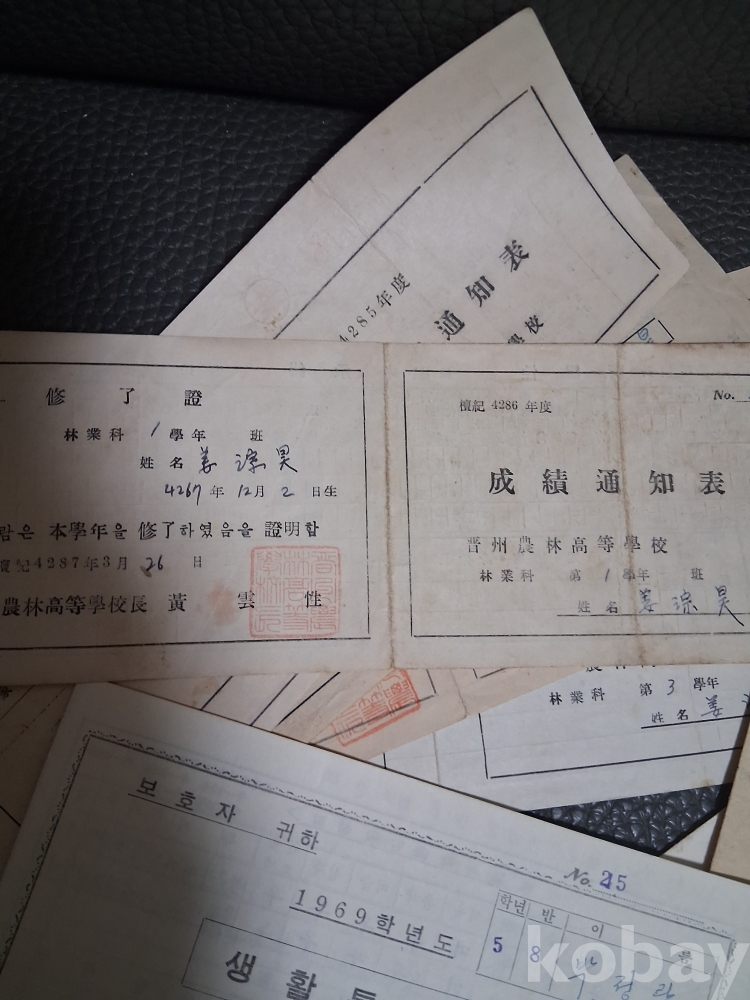 4285年度
通知表
學校
修了證
林業科 1學年 班
姓名 姜淙昊
4267年12月2日生
람은 本學年을 修了하였음을 證明함
檀紀4287年3月26日
農林高等學校長 黃雲性
檀紀 4286 年度
No.
成績通知表
晋州農林高等學校
林業科 第1學年 班
姓名 姜淙昊
林業科 第3學年
姓名 姜
보호자 귀하
No. 45
1969학년도
학년 반 이 름
5 8
생활
kobay